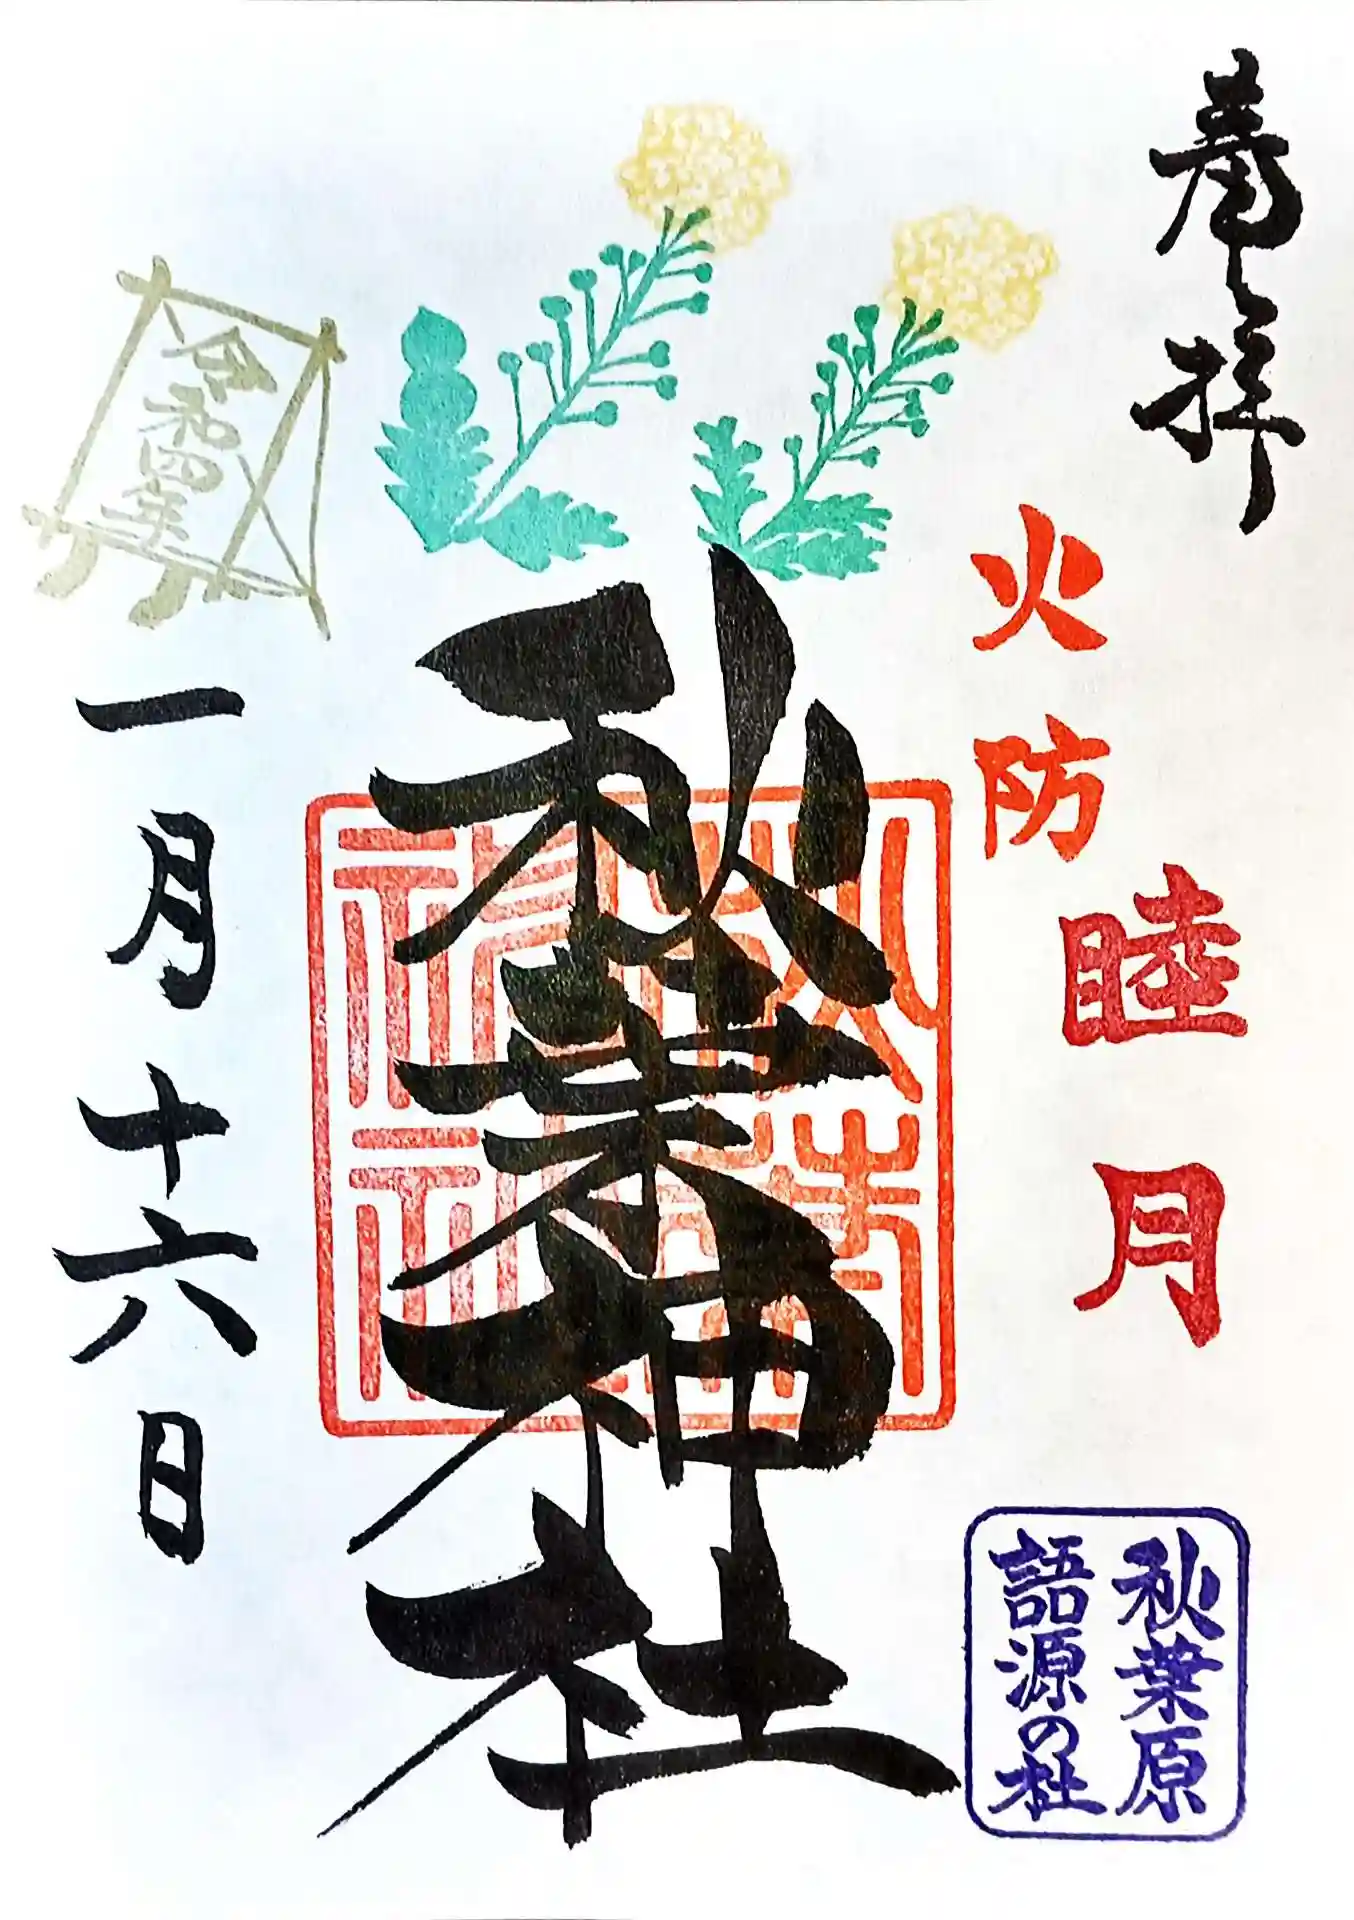 奉拝
火防
睦月
秋葉原
語源の社
秋葉神社
秋葉神社
令和四年
一月十六日